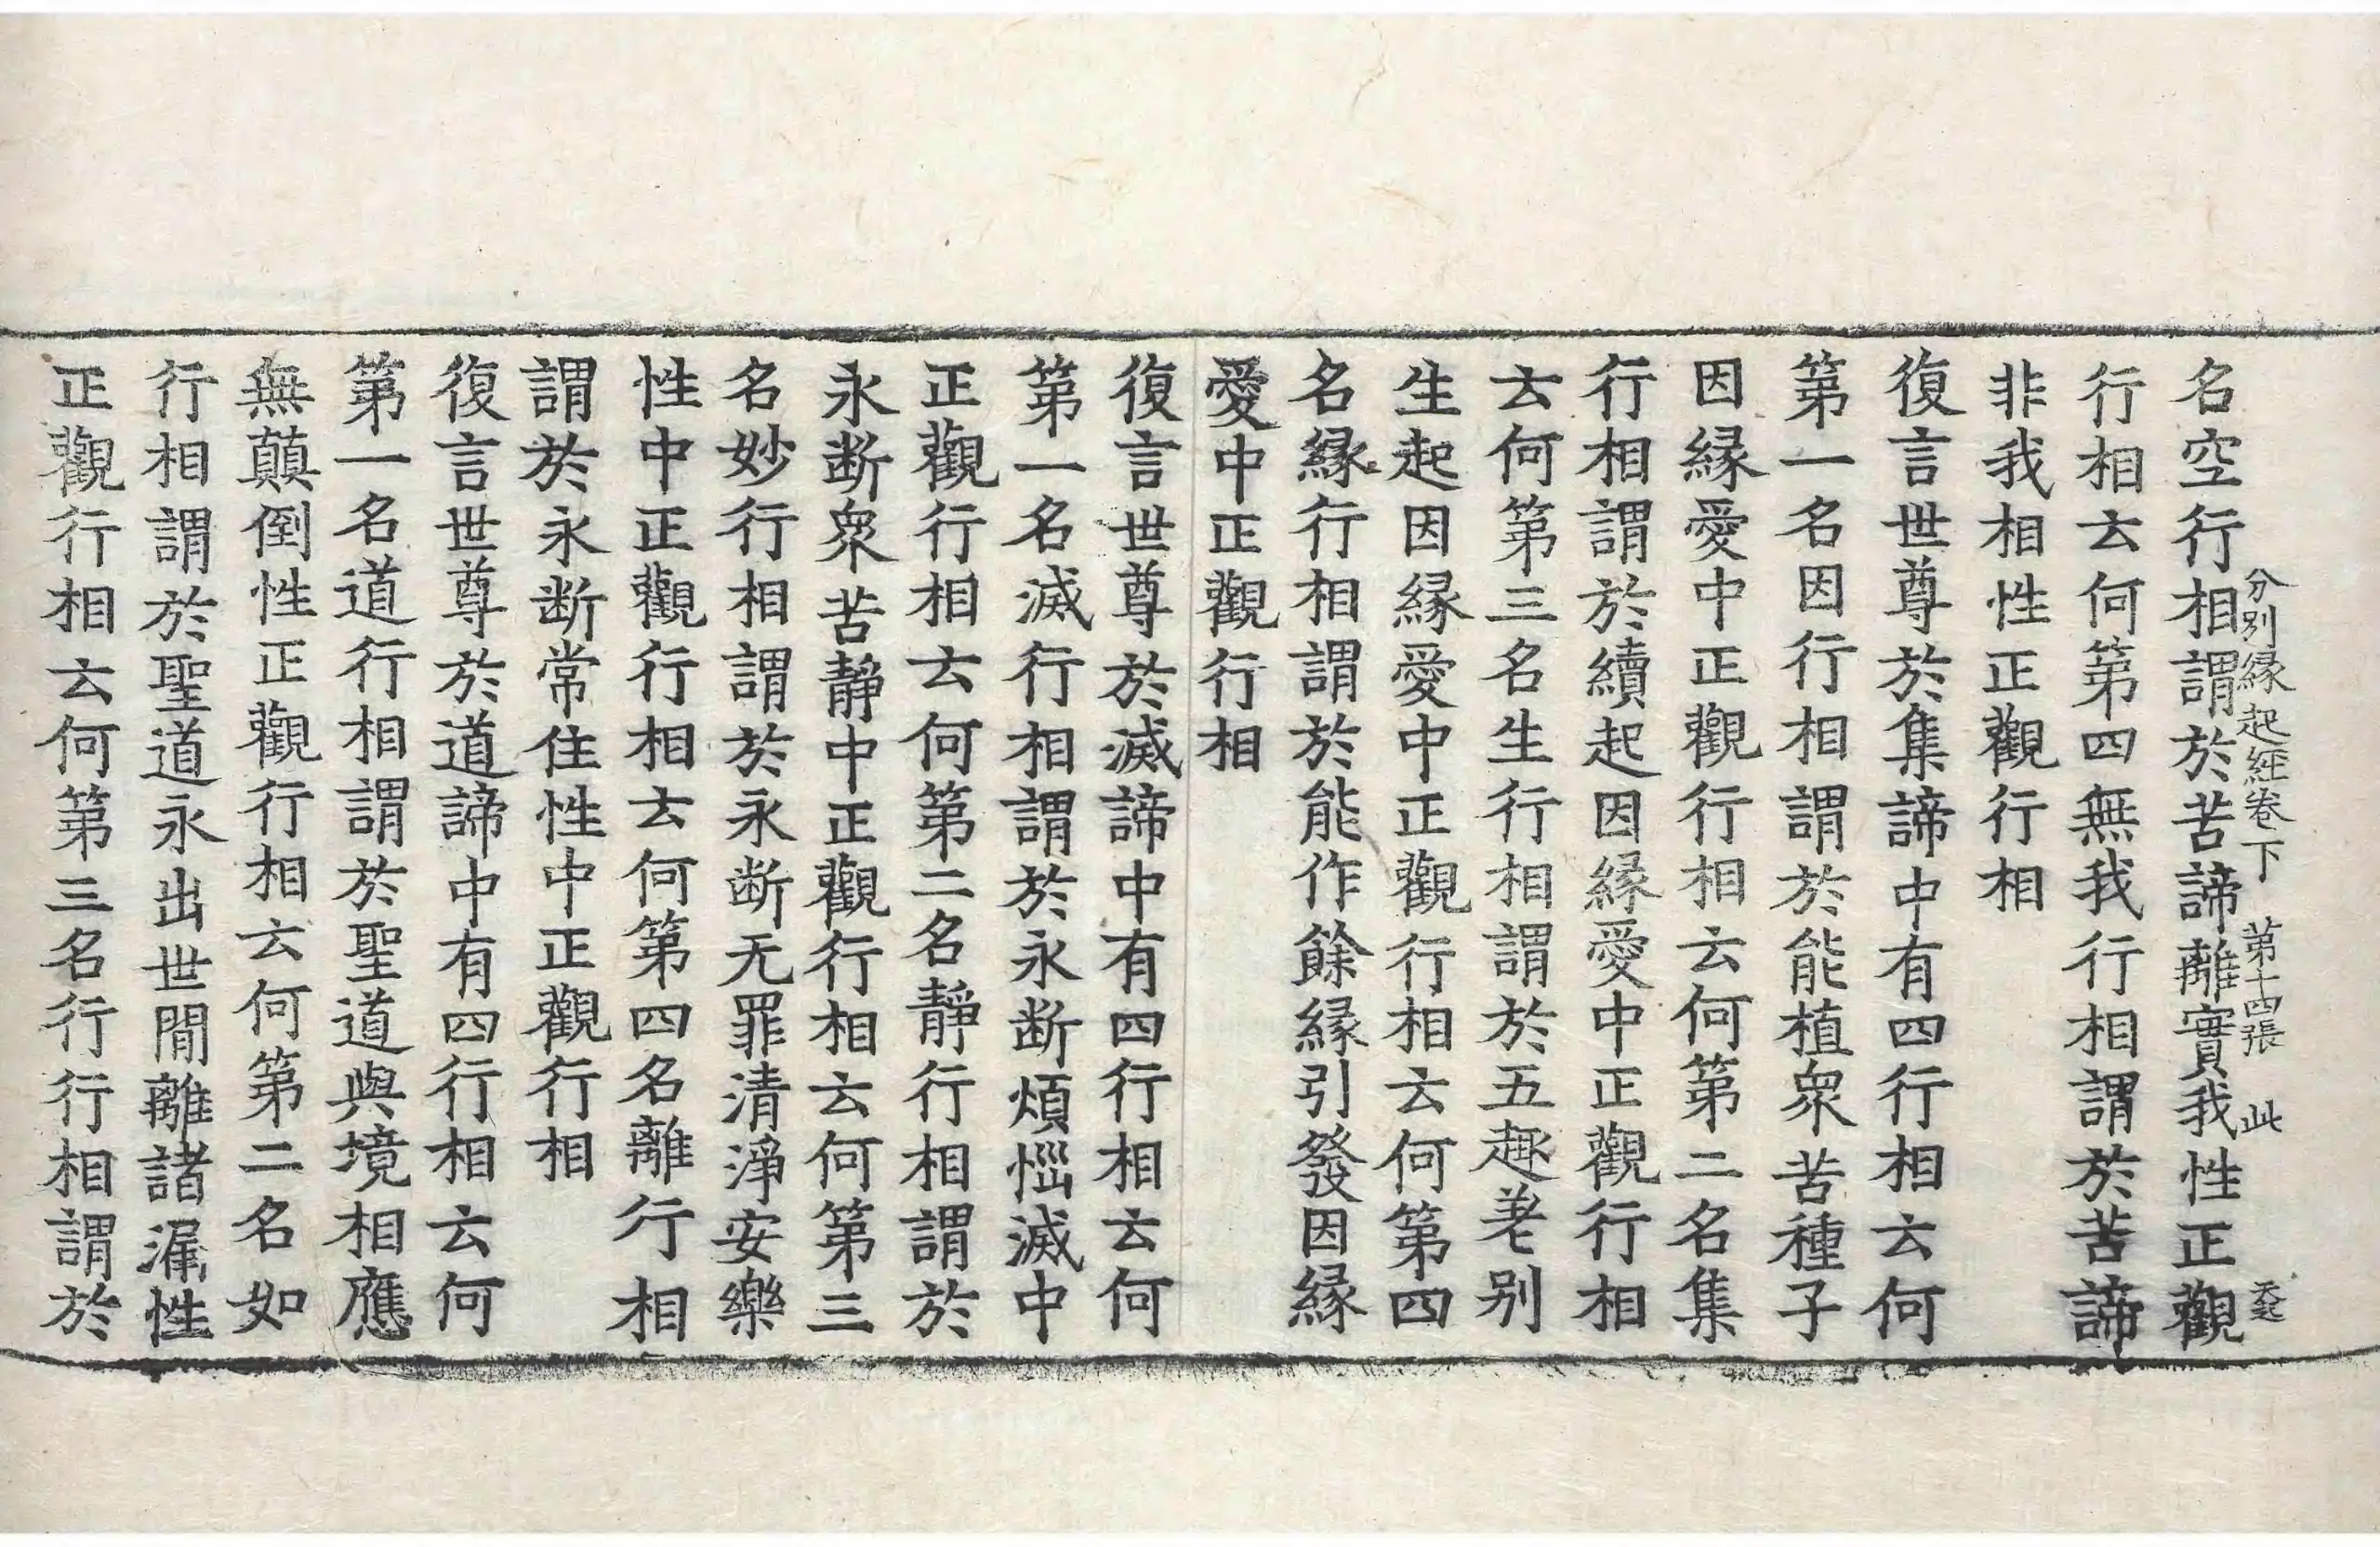 分別縁起經卷下 第十四張 此
名空行相謂於苦諦離實我性正觀
行相云何第四無我行相謂於苦諦
非我相性正觀行相
復言世尊於集諦中有四行相云何
第一名因行相謂於能植衆苦種子
因縁愛中正觀行相云何第二名集
行相謂於續起因縁愛中正觀行相
云何第三名生行相謂於五趣差别
生起因縁愛中正觀行相云何第四
名縁行相謂於能作餘縁引發因縁
愛中正觀行相
復言世尊於滅諦中有四行相云何
第一名滅行相謂於永断煩惱滅中
正觀行相云何第二名靜行相謂於
永断衆苦靜中正觀行相云何第三
名妙行相謂於永断无罪清淨安樂
性中正觀行相云何第四名離行相
謂於永断常住性中正觀行相
復言世尊於道諦中有四行相云何
第一名道行相謂於聖道與境相應
無顛倒性正觀行相云何第二名如
行相謂於聖道永出世間離諸漏性
正觀行相云何第三名行行相謂於